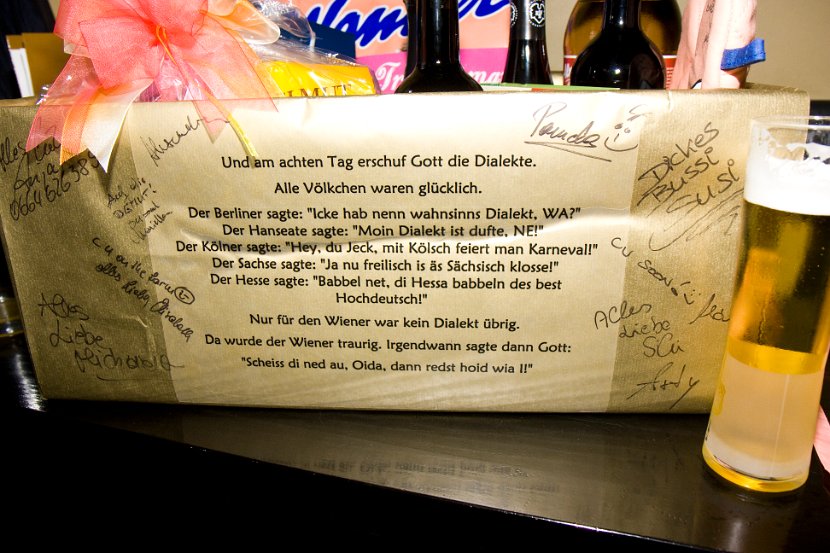 Manner
Und am achten Tag erschuf Gott die Dialekte.
Alle Völkchen waren glücklich.
Der Berliner sagte: "Icke hab nenn wahnsinns Dialekt, WA?"
Der Hanseate sagte: "Moin Dialekt ist dufte, NE!"
Der Kölner sagte: "Hey, du Jeck, mit Kölsch feiert man Karneval!"
Der Sachse sagte: "Ja nu freilisch is äs Sächsisch klosse!"
Der Hesse sagte: "Babbel net, di Hessa babbeln des best
Hochdeutsch!"
Nur für den Wiener war kein Dialekt übrig.
Da wurde der Wiener traurig. Irgendwann sagte dann Gott:
"Scheiss di ned au, Oida, dann redst hoid wia I!"
Alles
cu on the
alles Liebe
Alles
Liebe
Dickes
Bussi
Susi
cu soon!
Alles
Liebe
Andy